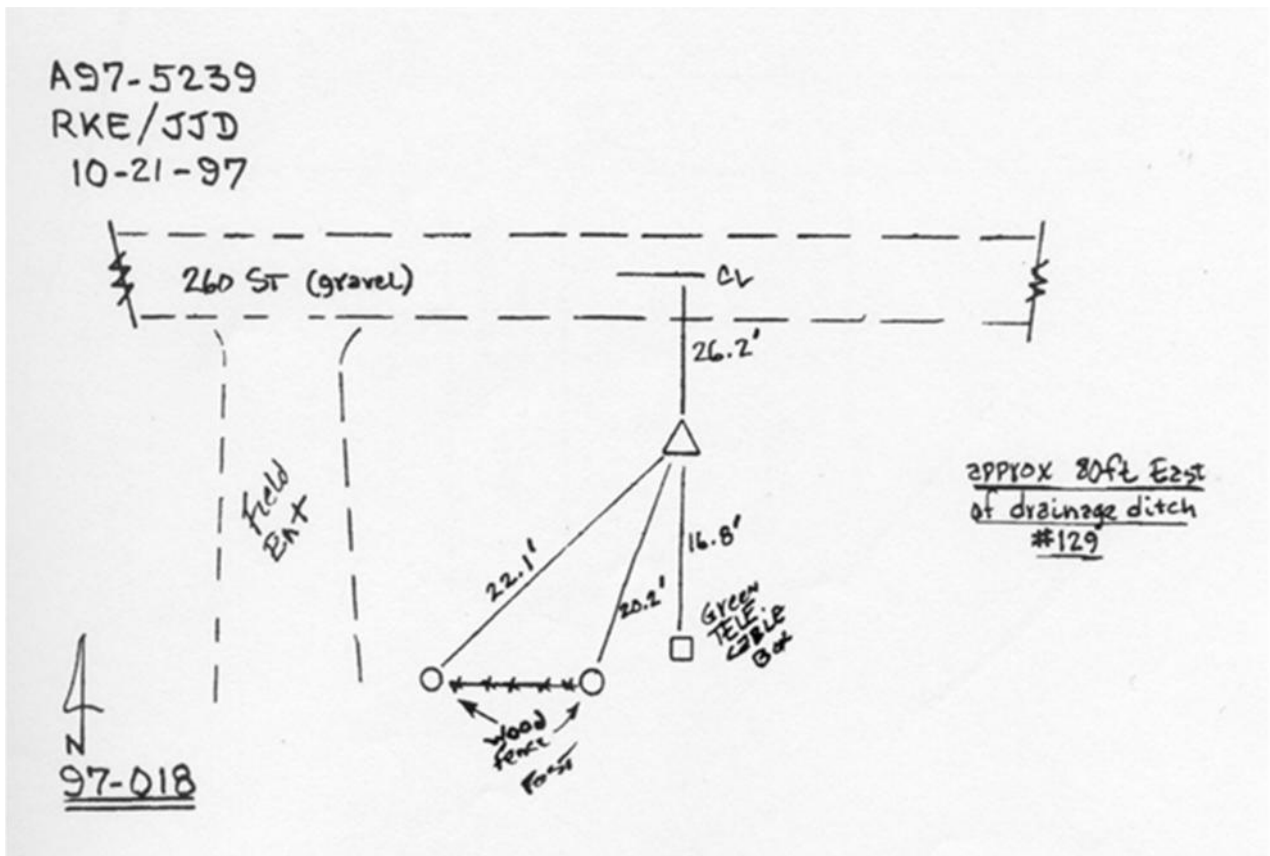 A97-5239
RKE/JJD
10-21-97
260 ST (gravel)
CL
26.2'
approx 80ft East
of drainage ditch
#129
Field
Ent
22.1'
20.2'
16.8'
Green
TELE
CABLE
Box
wood
fence
Post
N
97-018